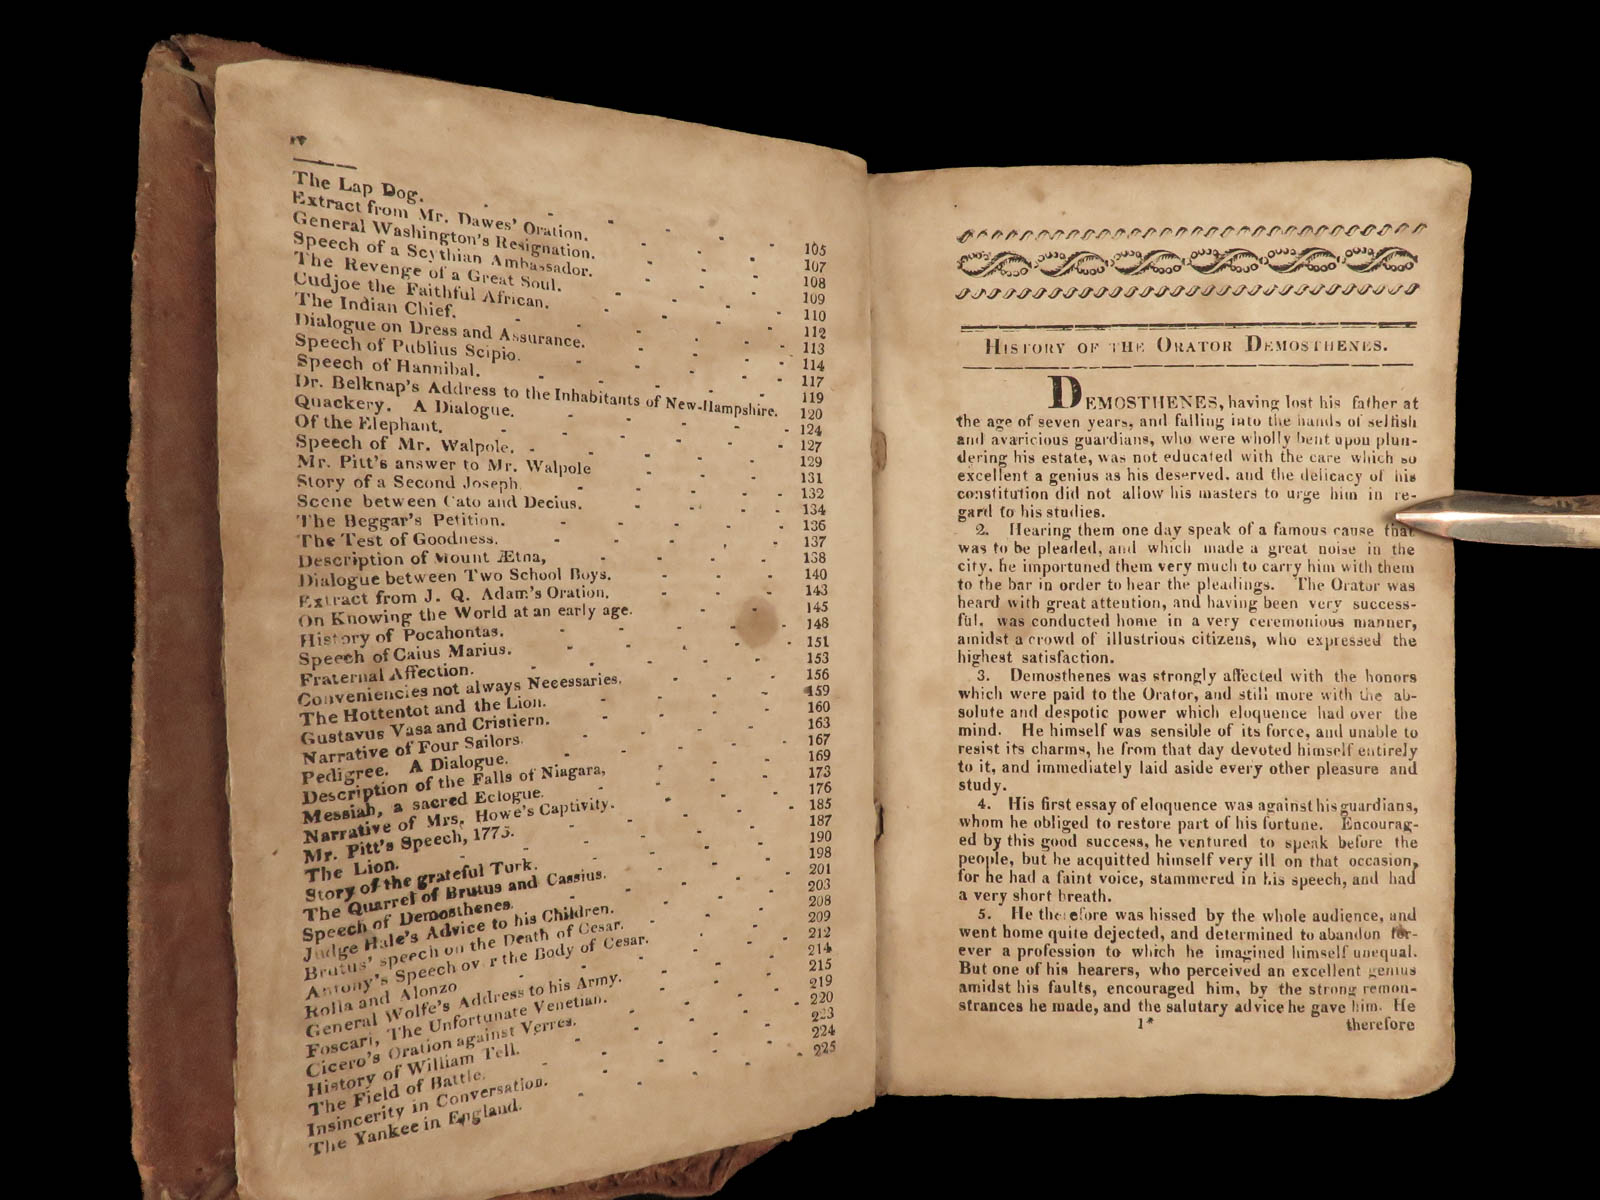 iv
The Lap Dog. - - - 105
Extract from Mr. Dawes' Oration. - - 107
General Washington's Resignation. - - 108
Speech of a Scythian Ambassador. - - 109
The Revenge of a Great Soul. - - 110
Cudjoe the Faithful African. - - 112
The Indian Chief. - - - 113
Dialogue on Dress and Assurance. - - 114
Speech of Publius Scipio. - - - 117
Speech of Hannibal. - - - 119
Dr. Belknap's Address to the Inhabitants of New-Hampshire. 120
Quackery. A Dialogue. - - - 124
Of the Elephant. - - - 127
Speech of Mr. Walpole. - - - 129
Mr. Pitt's answer to Mr. Walpole - - 131
Story of a Second Joseph. - - - 132
Scene between Cato and Decius. - - 134
The Beggar's Petition. - - - 136
The Test of Goodness. - - - 137
Description of Mount Ætna, - - 138
Dialogue between Two School Boys. - - 140
Extract from J. Q. Adam's Oration, - - 143
On Knowing the World at an early age. - - 145
History of Pocahontas. - - - 148
Speech of Caius Marius. - - - 151
Fraternal Affection. - - - 153
Conveniencies not always Necessaries. - - 156
The Hottentot and the Lion. - - 159
Gustavus Vasa and Cristiern. - - 160
Narrative of Four Sailors. - - 163
Pedigree. A Dialogue. - - - 167
Description of the Falls of Niagara, - - 169
Messiah, a sacred Eclogue. - - 173
Narrative of Mrs. Howe's Captivity. - - 176
Mr. Pitt's Speech, 1775. - - - 185
The Lion. - - - 187
Story of the grateful Turk. - - 190
The Quarrel of Brutus and Cassius. - - 198
Speech of Demosthenes. - - - 201
Judge Hale's Advice to his Children. - - 203
Brutus' speech on the Death of Cesar. - - 208
Antony's Speech over the Body of Cesar. - - 209
Rolla and Alonzo - - - 212
General Wolfe's Address to his Army. - - 214
Foscari, The Unfortunate Venetian. - - 215
Cicero's Oration against Verres. - - 219
History of William Tell. - - - 220
The Field of Battle. - - - 223
Insincerity in Conversation. - - 224
The Yankee in England. - - - 225
History of the Orator Demosthenes.
Demosthenes, having lost his father at
the age of seven years, and falling into the hands of selfish
and avaricious guardians, who were wholly bent upon plun-
dering his estate, was not educated with the care which so
excellent a genius as his deserved. and the delicacy of his
constitution did not allow his masters to urge him in re-
gard to his studies.
2. Hearing them one day speak of a famous cause that
was to be pleaded, and which made a great noise in the
city, he importuned them very much to carry him with them
to the bar in order to hear the pleadings. The Orator was
heard with great attention, and having been very success-
ful, was conducted home in a very ceremonious manner,
amidst a crowd of illustrious citizens, who expressed the
highest satisfaction.
3. Demosthenes was strongly affected with the honors
which were paid to the Orator, and still more with the ab-
solute and despotic power which eloquence had over the
mind. He himself was sensible of its force, and unable to
resist its charms, he from that day devoted himself entirely
to it, and immediately laid aside every other pleasure and
study.
4. His first essay of eloquence was against his guardians,
whom he obliged to restore part of his fortune. Encourag-
ed by this good success, he ventured to speak before the
people, but he acquitted himself very ill on that occasion,
for he had a faint voice, stammered in his speech, and had
a very short breath.
5. He therefore was hissed by the whole audience, and
went home quite dejected, and determined to abandon for-
ever a profession to which he imagined himself unequal.
But one of his hearers, who perceived an excellent genius
amidst his faults, encouraged him, by the strong remon-
strances he made, and the salutary advice he gave him. He
1* therefore